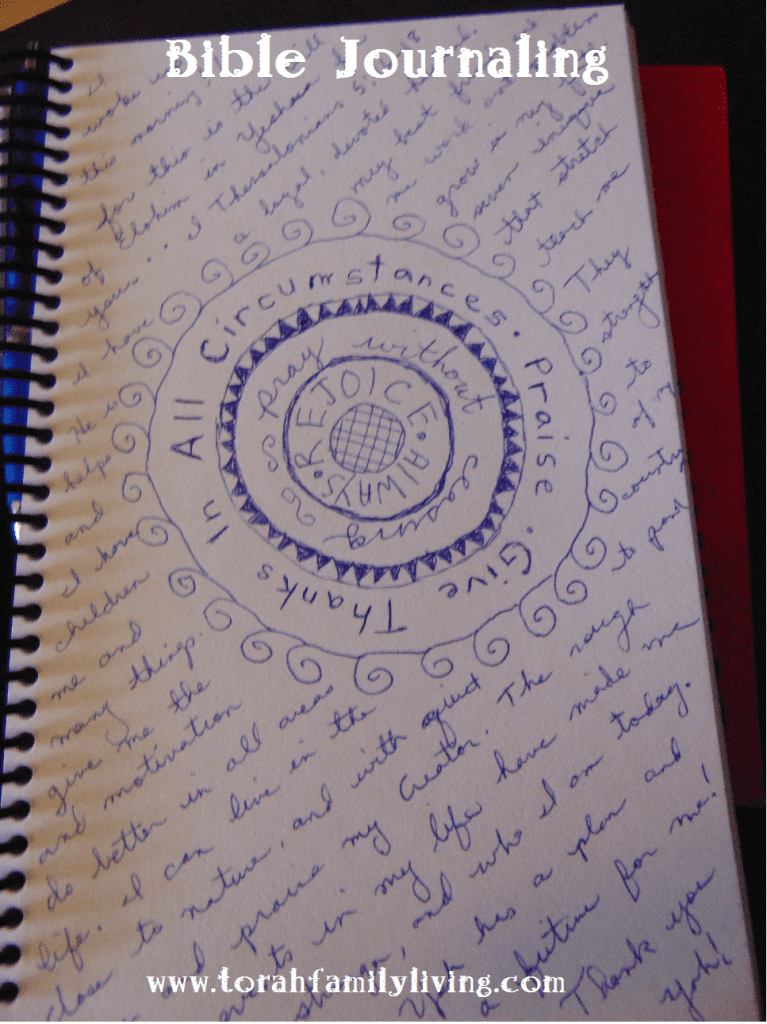 Bible Journaling
I
woke
this morning
will
for this is the
of Elohim in Yeshua
you... I Thessalonians 5:18
I have a loyal, devoted
He is my best friend and
helps me work
and grow in my
I have seven unique
children that stretch
me and teach me
many things. They
give me the strength
and motivation to
do better in all areas of my
life. I can live in the country
close to nature, and with quiet to
and praise my Creator. The rough
events in my life have made me
stronger, and who I am today.
Yah has a plan and
a future for me!
Thank you
Yah!
REJOICE • ALWAYS •
pray without ceasing
Give Thanks In All Circumstances • Praise •
www.torahfamilyliving.com